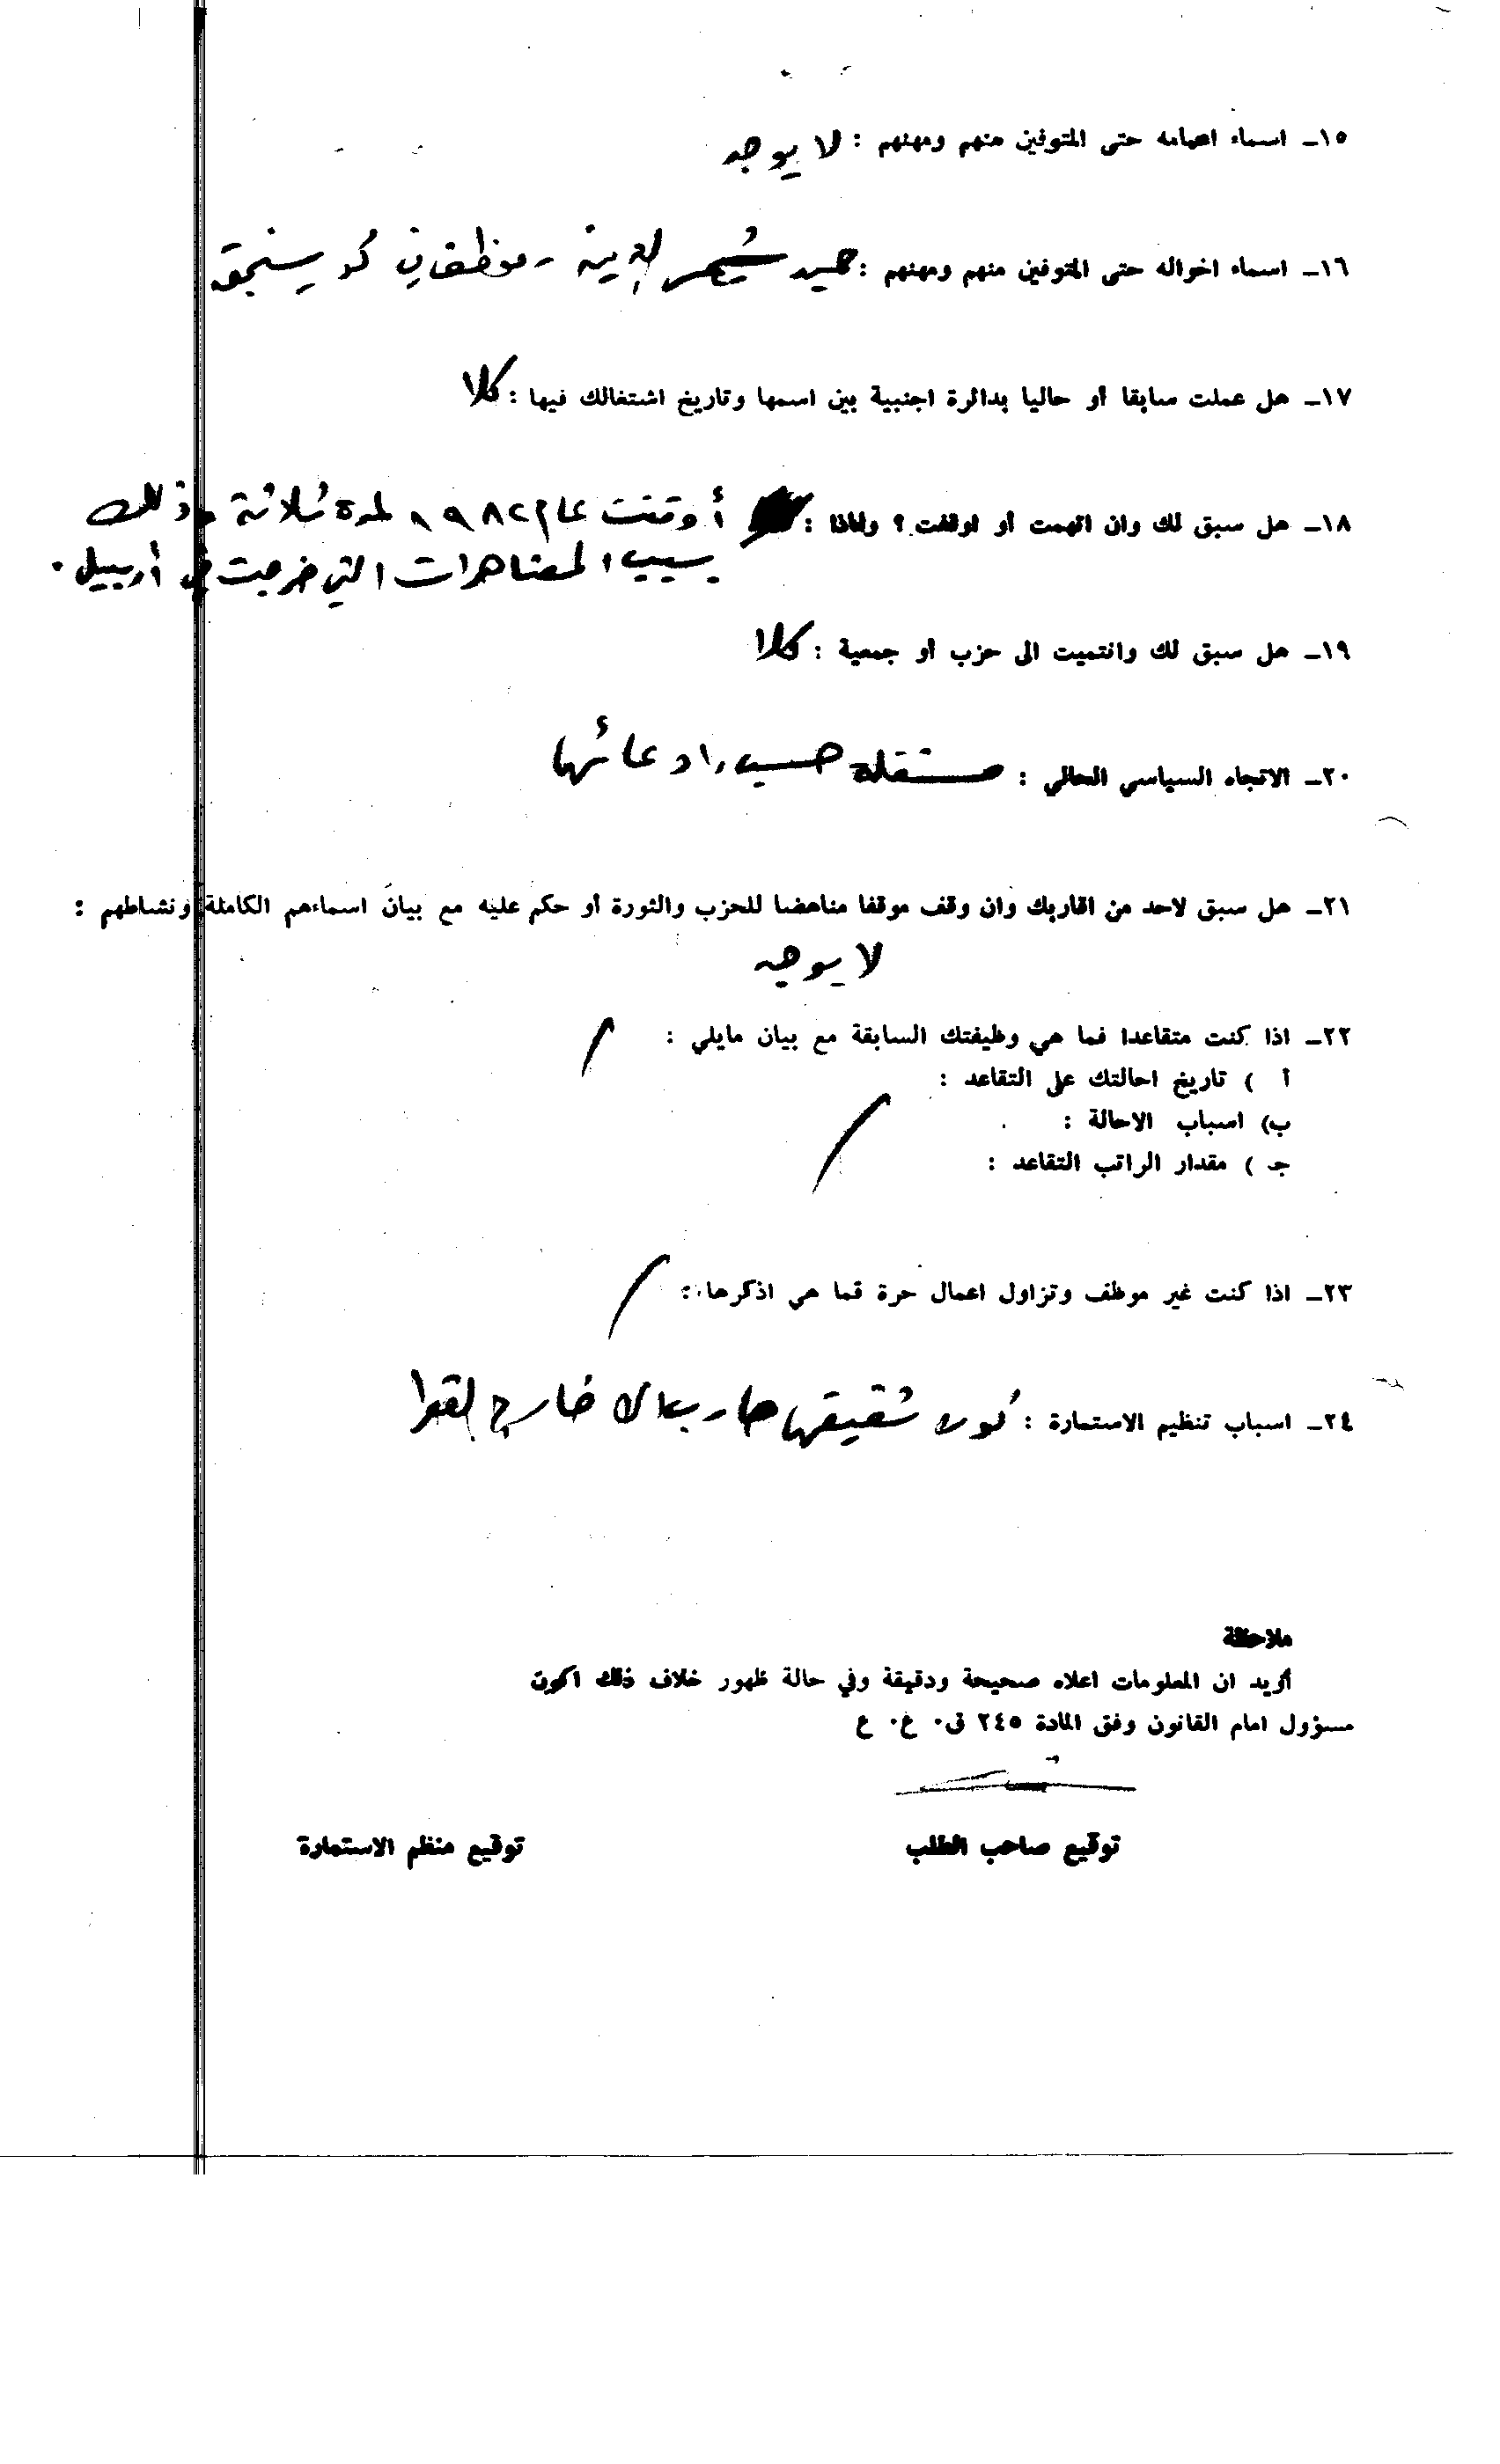 ١٥ـ اسماء اعمامه حتى المتوفين منهم ومهنهم : لا يوجد
١٦ـ اسماء اخواله حتى المتوفين منهم ومهنهم : حميد شمس الدين - موظف في كويسنجق
١٧ـ هل عملت سابقا أو حاليا بدائرة اجنبية بين اسمها وتاريخ اشتغالك فيها : كلا
١٨ـ هل سبق لك وان اتهمت أو اوقفت ؟ ولماذا : أوقفت عام ١٩٨٢ لمدة ثلاثة وذلك
بسبب المضاهرات التي خرجت في أربيل .
١٩ـ هل سبق لك وانتميت الى حزب أو جمعية : كلا
٢٠ـ الاتجاه السياسي الحالي : مستقلة حسب ادعائها
٢١ـ هل سبق لاحد من اقاربك وان وقف موقفا مناهضا للحزب والثورة أو حكم عليه مع بيان اسماءهم الكاملة ونشاطهم :
لا يوجد
٢٢ـ اذا كنت متقاعدا فما هي وظيفتك السابقة مع بيان مايلي :
أ ) تاريخ احالتك على التقاعد :
ب) اسباب الاحالة :
جـ ) مقدار الراتب التقاعد :
٢٣ـ اذا كنت غير موظف وتزاول اعمال حرة فما هي اذكرها :
٢٤ـ اسباب تنظيم الاستمارة : كون شقيقها هارب الى خارج القطر
ملاحظة
أؤيد ان المعلومات اعلاه صحيحة ودقيقة وفي حالة ظهور خلاف ذلك اكون
مسؤول امام القانون وفق المادة ٢٤٥ ق٠ ع٠ ع
توقيع صاحب الطلب توقيع منظم الاستمارة